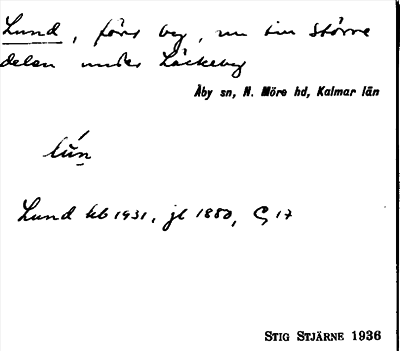 Lund, förr by, nu till större
delen under Läckeby
Åby sn, N. Möre hd, Kalmar län
lún
Lund kb 1931, jb 1880, G 17
STIG STJÄRNE 1936